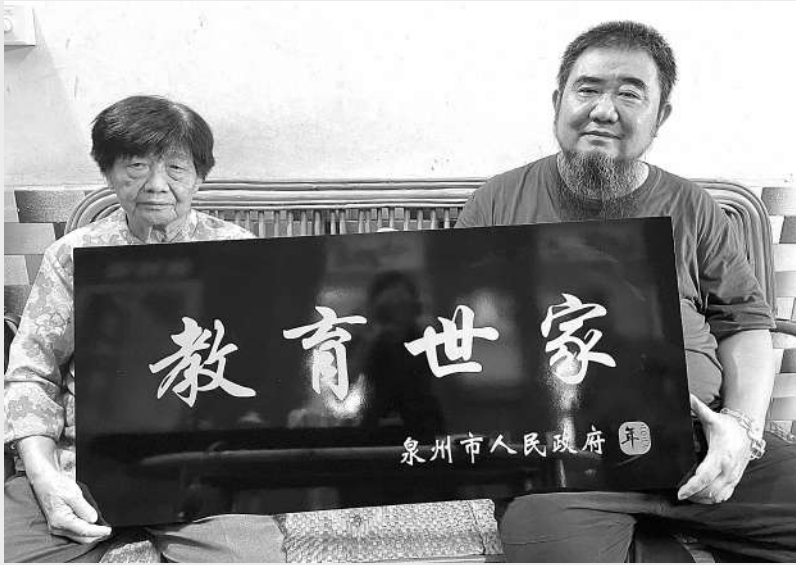 教育世家
泉州市人民政府
年